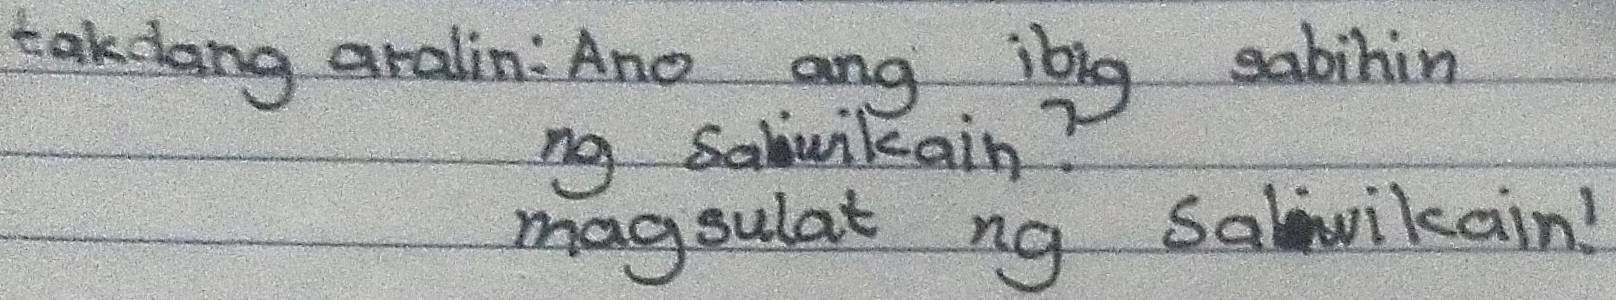 takdang aralin: Ano ang ibig sabihin
ng Saliwikain?
magsulat ng Saliwikain!